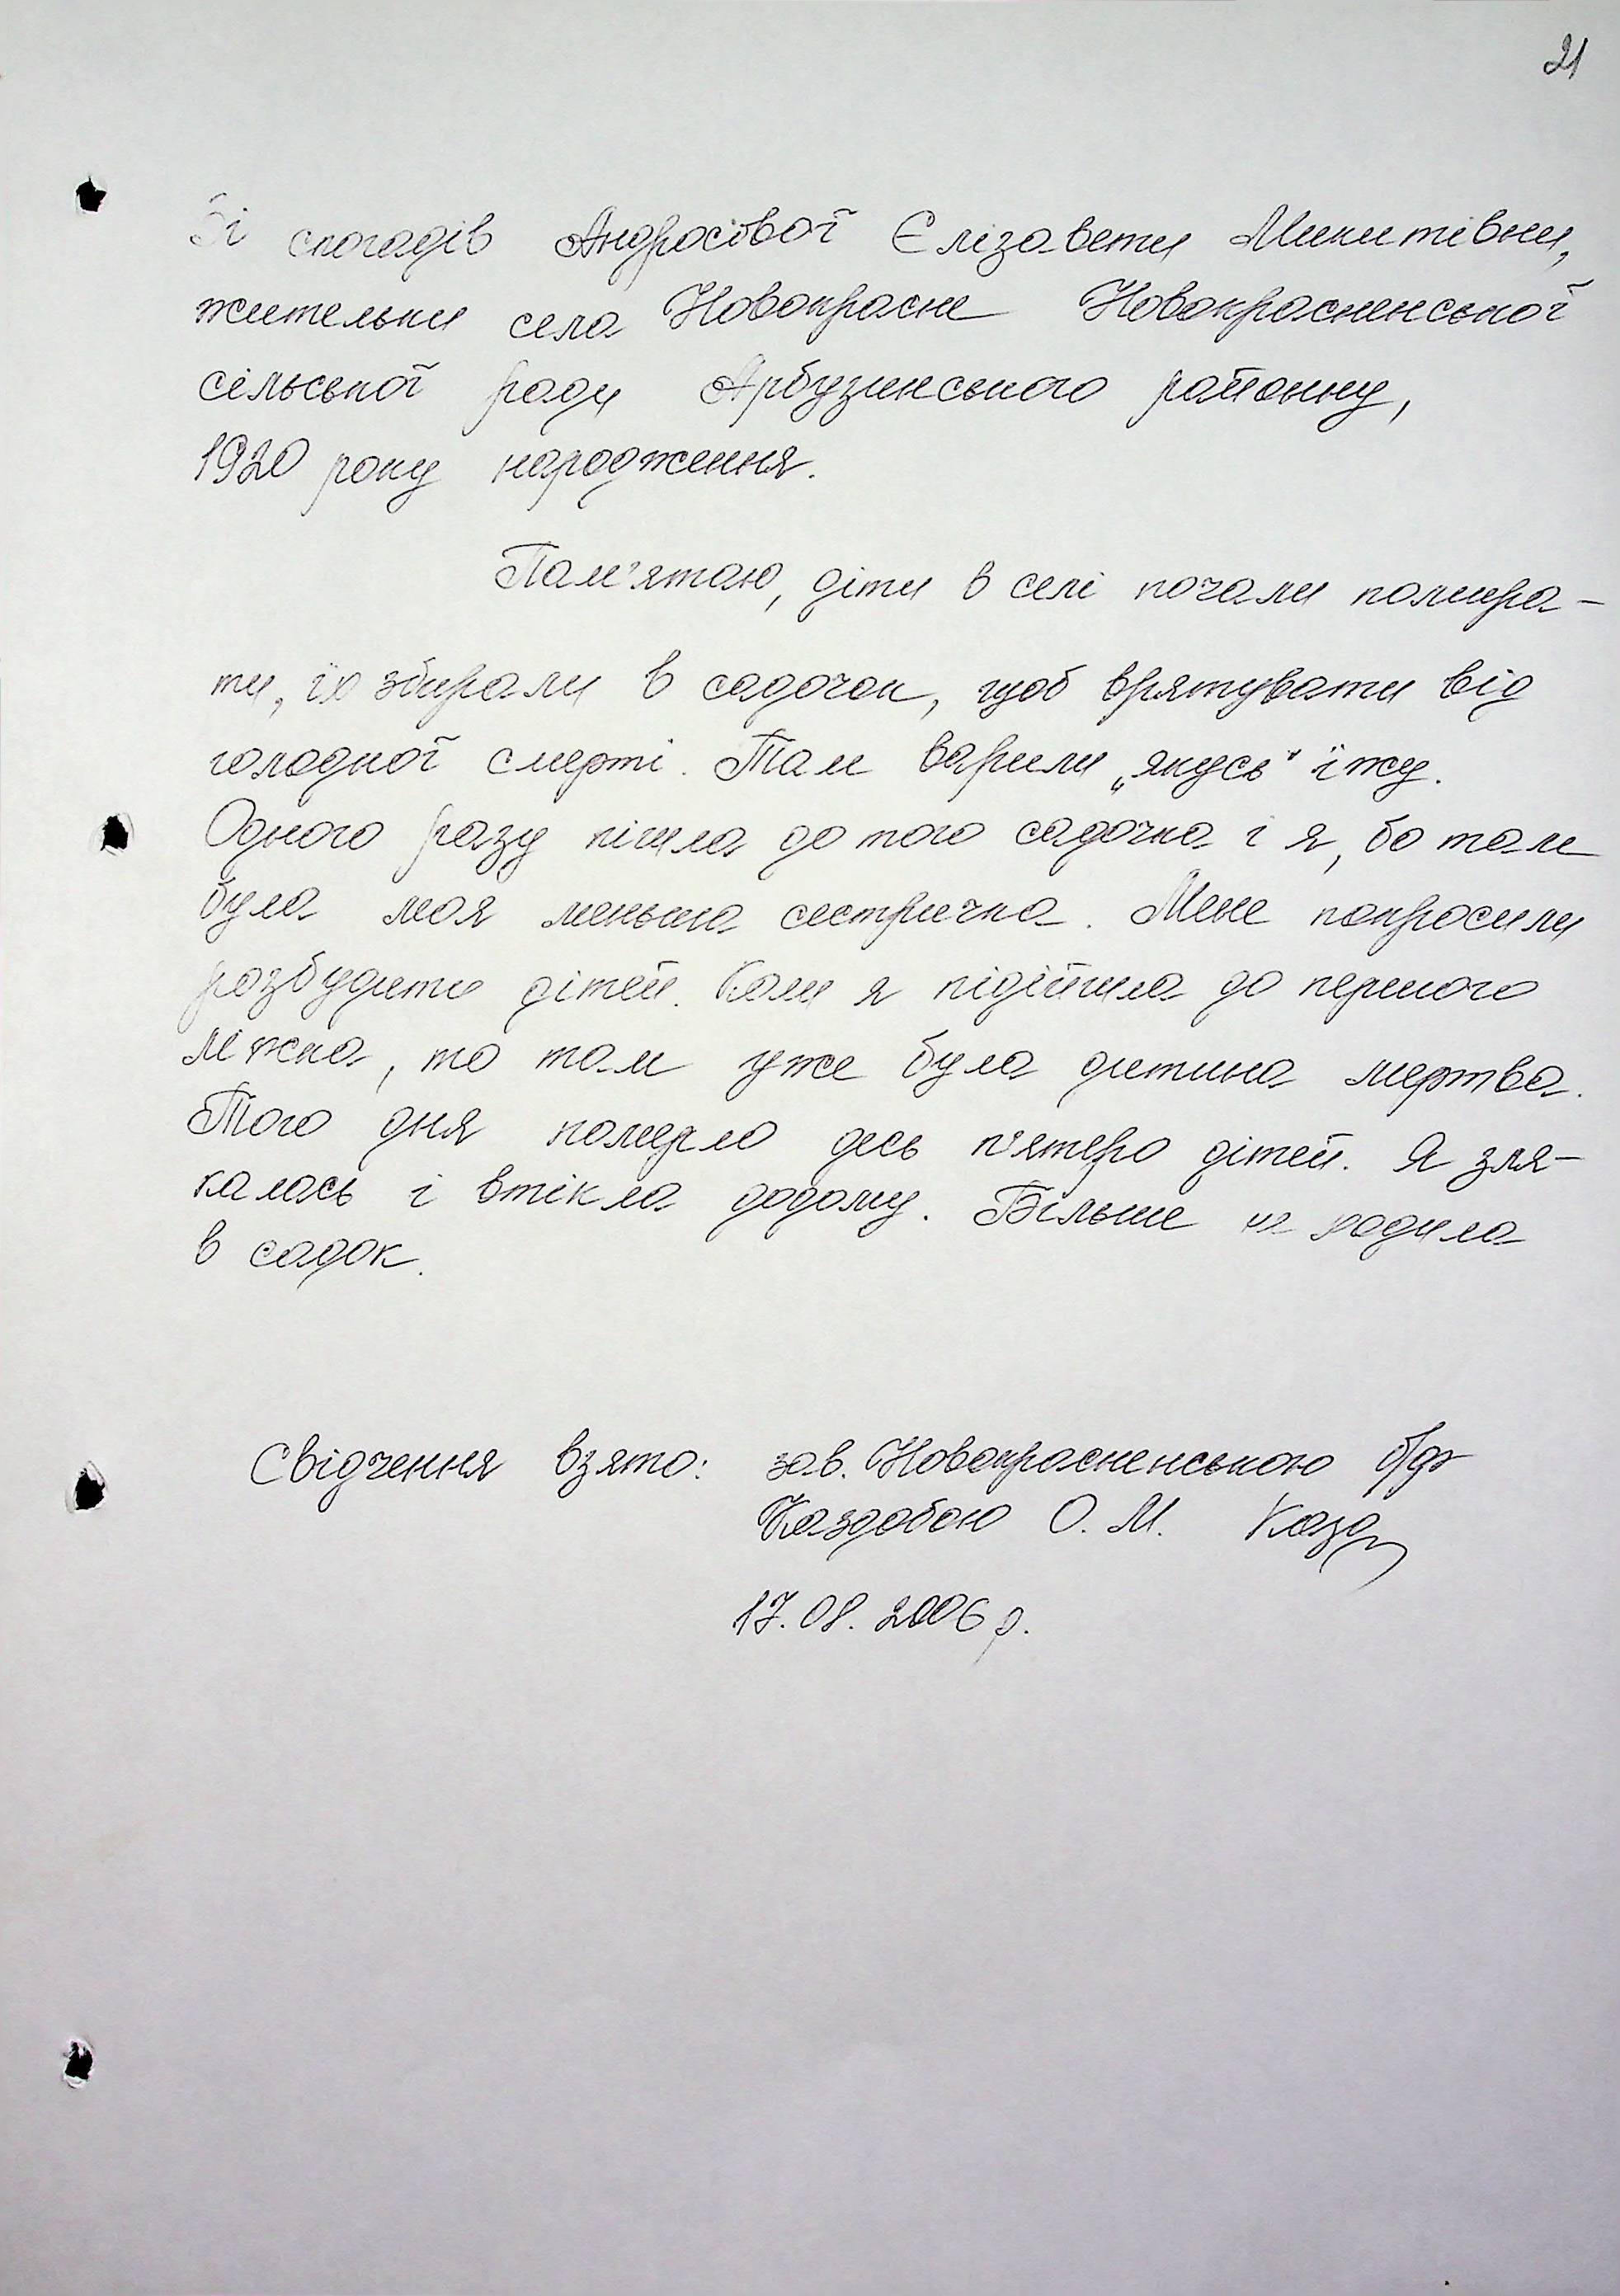 21
Зі спогадів Андросової Єлізавети Микитівни,
жительки села Новокрасне Новокрасненської
сільської ради Арбузинського району,
1920 року народження.
Пам'ятаю, діти в селі почали помира-
ти, їх збирали в садочок, щоб врятувати від
голодної смерті. Там варили „якусь" їжу.
Одного разу пішла до того садочка і я, бо там
була моя менша сестричка. Мене попросили
розбудити дітей. Коли я підійшла до першого
ліжка, то там уже була дитина мертва.
Того дня померло десь п'ятеро дітей. Я зля-
калась і втікла додому. Більше не ходила
в садок.
Свідчення взято: зав. Новокрасненською б/ф
Каздобою О. М. Казд
17.08.2006 р.